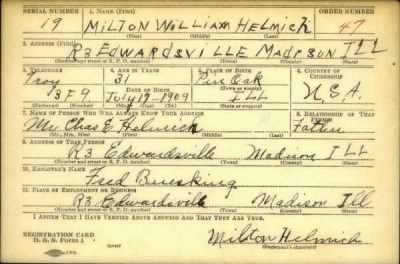 SERIAL NUMBER 1. NAME (Print) ORDER NUMBER
19 MILTON WILLIAM HELMICH 47
(First) (Middle) (Last)
2. ADDRESS (Print)
R3 EDWARDSVILLE MADISON ILL
(Number and street or R. F. D. number) (Town) (County) (State)
3. TELEPHONE 4. AGE IN YEARS 5. PLACE OF BIRTH 6. COUNTRY OF CITIZENSHIP
Troy 31 Pin Oak
(Town or county)
DATE OF BIRTH
13F9 July 19-1909 Ill U.S.A.
(Exchange) (Number) (Mo.) (Day) (Yr.) (State or country)
7. NAME OF PERSON WHO WILL ALWAYS KNOW YOUR ADDRESS 8. RELATIONSHIP OF THAT PERSON
Mr. Chas E. Helmich Father
(Mr., Mrs., Miss) (First) (Middle) (Last)
9. ADDRESS OF THAT PERSON
R3 Edwardsville Madison ILL
(Number and street or R. F. D. number) (Town) (County) (State)
10. EMPLOYER'S NAME
Fred Buesking
11. PLACE OF EMPLOYMENT OR BUSINESS
R3 Edwardsville Madison Ill
(Number and street or R. F. D. number) (Town) (County) (State)
I AFFIRM THAT I HAVE VERIFIED ABOVE ANSWERS AND THAT THEY ARE TRUE.
REGISTRATION CARD
D. S. S. Form 1
Milton Helmich
(Registrant's signature)